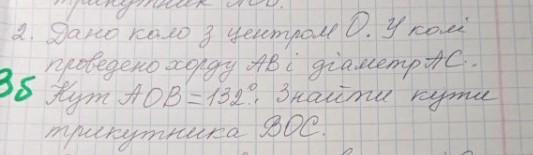 трикутник АОВ.
2. Дано коло з центром О. У колі
проведено хорду АВ і діаметр АС.
3б Кут АОВ = 132°. Знайти кути
трикутника ВОС.